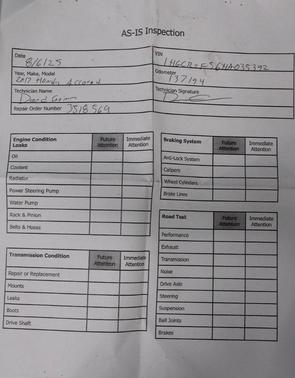 AS-IS Inspection
Date
8/6/25
VIN
Year, Make, Model
2017 Honda Accord
Odometer
137194
Technician Name
Technician Signature
Repair Order Number 3518569
Engine Condition Future Immediate
Leaks Attention Attention
Oil
Coolant
Radiator
Power Steering Pump
Water Pump
Rack & Pinion
Belts & Hoses
Transmission Condition Future Immediate
Attention Attention
Repair or Replacement
Mounts
Leaks
Boots
Drive Shaft
Braking System Future Immediate
Attention Attention
Anti-Lock System
Calipers
Wheel Cylinders
Brake Lines
Road Test Future Immediate
Attention Attention
Performance
Exhaust
Transmission
Noise
Drive Axle
Steering
Suspension
Ball Joints
Brakes